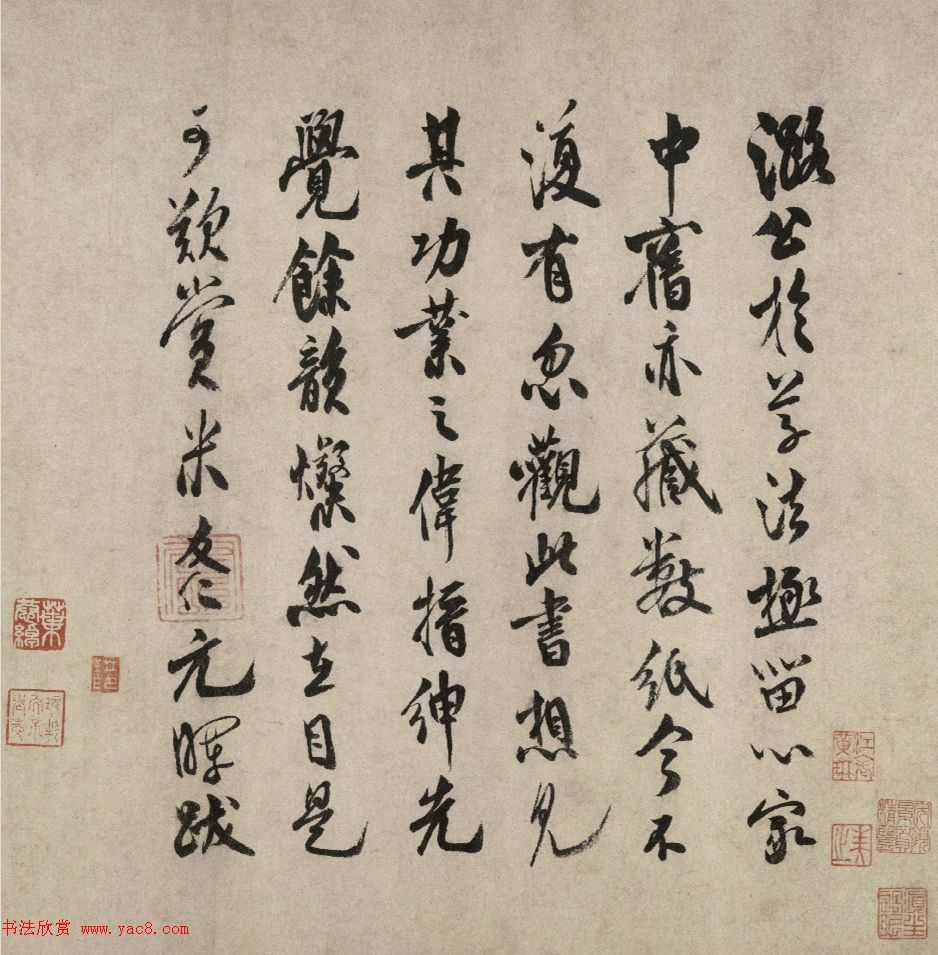 潞公於草法極留心家
中舊亦藏數紙今不
復有忽觀此書想見
其功業之偉搢紳先
覺餘韻燦然在目是
可歎賞米友仁元暉跋
书法欣赏 www.yac8.com